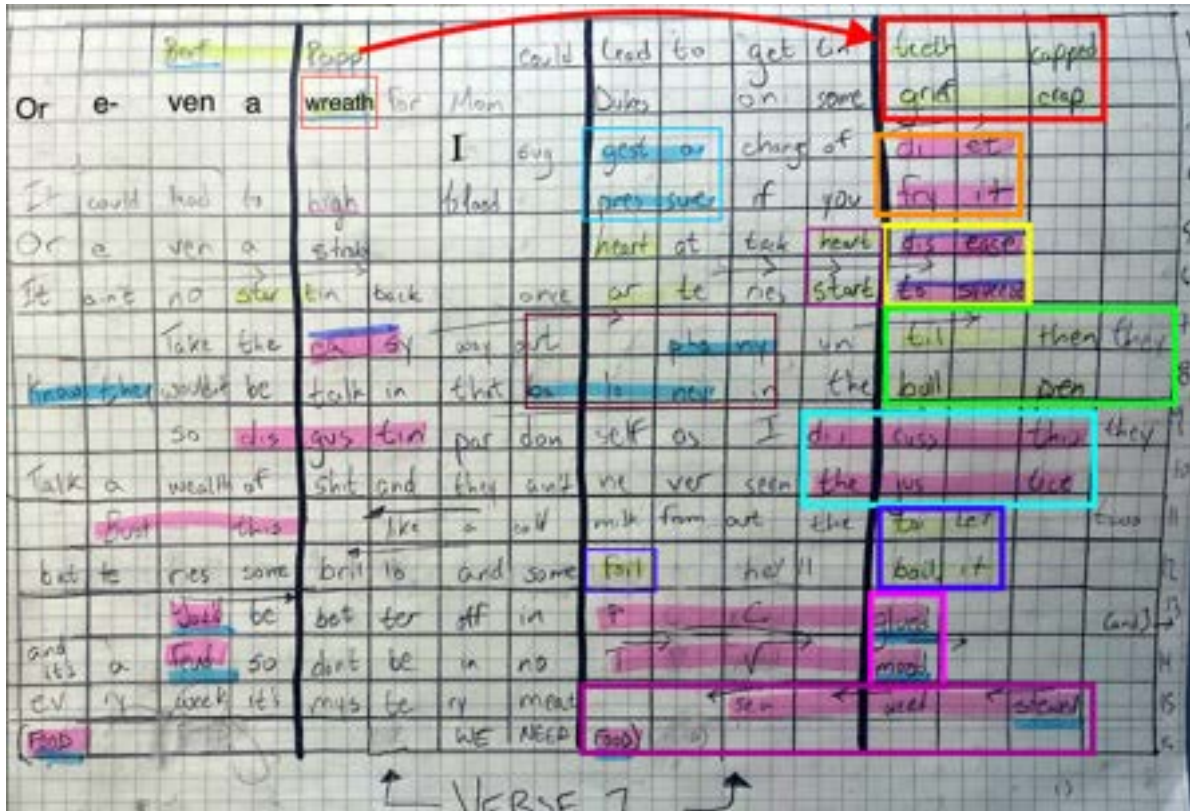 Beef Papp could lead to get tin teeth capped
Or e- ven a wreath for Mom Dukes on some grief crap
I sug gest a change of di et
It could lead to high blood pres sure if you fry it
Or e ven a stroke heart at tack heart dis ease
It ain't no star tin back once ar te ries start to squeeze
Take the ea sy way out pho ny un til then they
Know they wouldn't be talk in that ba lo ney in the bull pen
so dis gus tin par don self as I dis cuss this they
Talk a wealth of shit and they ain't ne ver seen the jus tice
Bust this like a cold milk from out the toi let two
bat te ries some bril lo and some foil he'll boil it
You'd be bet ter off in P C glued (and)
and it's a feud so don't be in no T V mood
ev ry week it's mys te ry meat sea weed stewed
(FOOD WE NEED FOOD)
VERSE